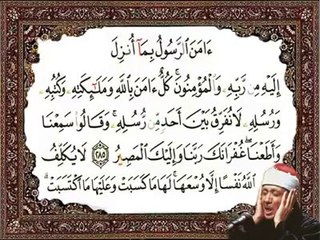 ءَامَنَ ٱلرَّسُولُ بِمَآ أُنزِلَ
إِلَيْهِ مِن رَّبِّهِۦ وَٱلْمُؤْمِنُونَ ۚ كُلٌّ ءَامَنَ بِٱللَّهِ وَمَلَٰٓئِكَتِهِۦ وَكُتُبِهِۦ
وَرُسُلِهِۦ لَا نُفَرِّقُ بَيْنَ أَحَدٍ مِّن رُّسُلِهِۦ ۚ وَقَالُوا۟ سَمِعْنَا
وَأَطَعْنَا ۖ غُفْرَانَكَ رَبَّنَا وَإِلَيْكَ ٱلْمَصِيرُ ٢٨٥ لَا يُكَلِّفُ
ٱللَّهُ نَفْسًا إِلَّا وُسْعَهَا ۚ لَهَا مَا كَسَبَتْ وَعَلَيْهَا مَا ٱكْتَسَبَتْ ۗ